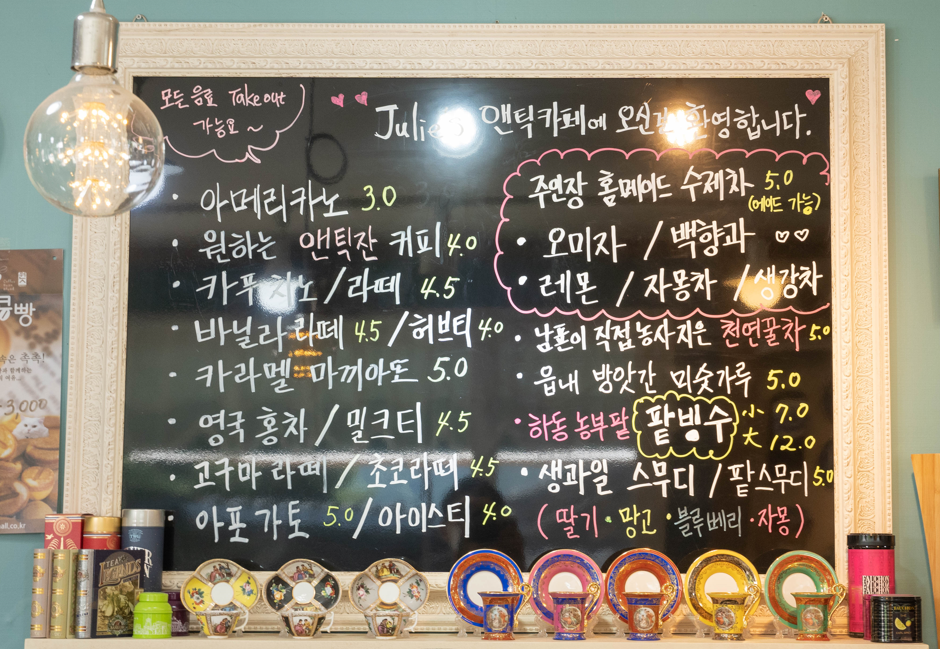 모든 음료 Take out
가능요~
Julie's 앤틱카페에 오신걸 환영합니다.
· 아메리카노 3.0
· 원하는 앤틱잔 커피 4.0
· 카푸치노/라떼 4.5
· 바닐라라떼 4.5/허브티 4.0
· 카라멜 마끼아또 5.0
· 영국 홍차/밀크티 4.5
· 고구마 라떼/초코라떼 4.5
· 아포가토 5.0/아이스티 4.0
주연장 홈메이드 수제차 5.0
(에이드 가능)
· 오미자 / 백향과 ♡♡
· 레몬 / 자몽차 / 생강차
· 남편이 직접농사지은 천연꿀차 5.0
· 읍내 방앗간 미숫가루 5.0
· 하동 농부팥 팥빙수 小 7.0
大 12.0
· 생과일 스무디 / 팥스무디 5.0
(딸기·망고·블루베리·자몽)
빵
3,000
all.co.kr
TEA
FAUCHON
FAUCHON